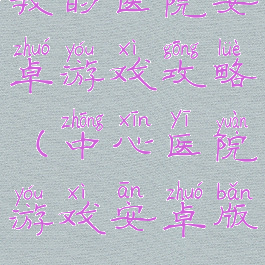 我的医院安
zhuó yóu xì gōng lüè
卓游戏攻略
zhōng xīn yī yuàn
（中心医院
yóu xì ān zhuó bǎn
游戏安卓版